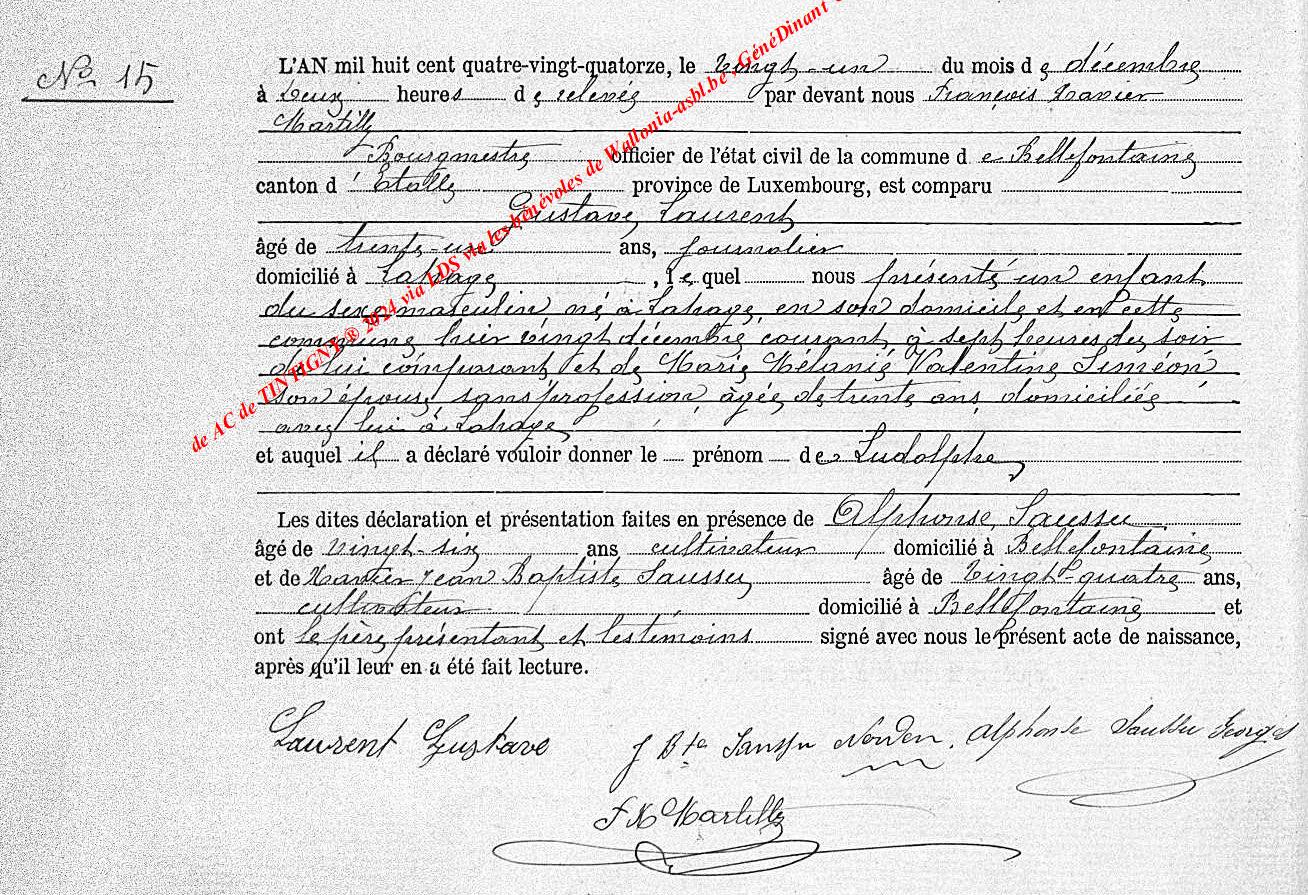 No 15
L'AN mil huit cent quatre-vingt-quatorze, le vingt-un du mois de décembre
à deux heures de relevée par devant nous François Xavier
Martilly
Bourgmestre officier de l'état civil de la commune de Bellefontaine
canton d'Etalle province de Luxembourg, est comparu
Gustave Laurent
âgé de trente-un ans, journalier
domicilié à Lahage, lequel nous présenté un enfant
du sexe masculin, né à Lahage, en son domicile et en cette
commune hier vingt décembre courant à sept heures du soir
de lui comparant et de Marie Mélanie Valentine Siméon
son épouse, sans profession, âgée de trente ans, domiciliée
avec lui à Lahage
et auquel il a déclaré vouloir donner le prénom de Ludolphe
Les dites déclaration et présentation faites en présence de Alphonse Saussu
âgé de vingt-six ans cultivateur domicilié à Bellefontaine
et de Xavier Jean Baptiste Saussu âgé de vingt-quatre ans,
cultivateur domicilié à Bellefontaine et
ont le père présentant et les témoins signé avec nous le présent acte de naissance,
après qu'il leur en a été fait lecture.
Laurent Gustave J Bte Saussu Alphonse Saussu Georges
F X Martilly
de AC de TINTIGNY ® 2024 via LDS via les bénévoles de Wallonia-asbl.be - GénéDinant